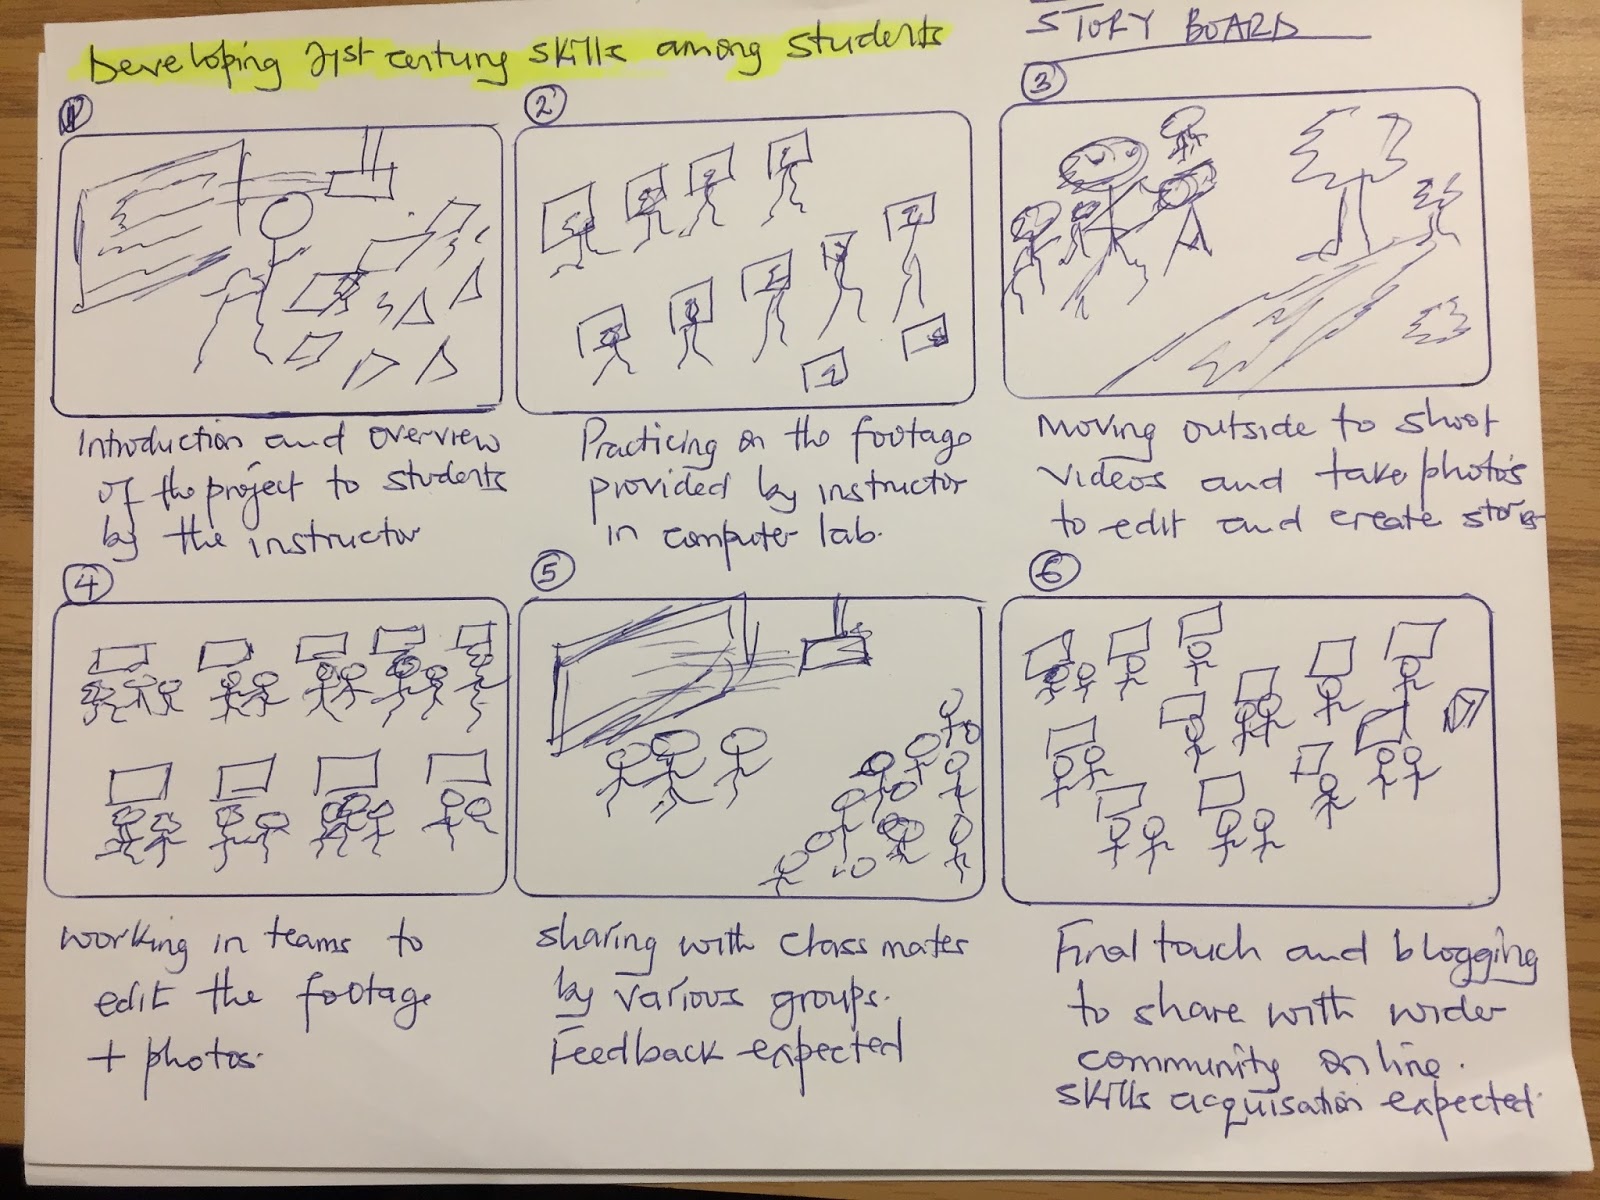 Developing 21st century skills among students
STORY BOARD
1
Introduction and overview
of the project to students
by the instructor
2
Practicing on the footage
provided by instructor
in computer lab.
3
Moving outside to shoot
videos and take photos
to edit and create stories
4
working in teams to
edit the footage
+ photos.
5
sharing with class mates
by various groups.
Feedback expected
6
Final touch and blogging
to share with wider
community online.
skills acquisation expected.